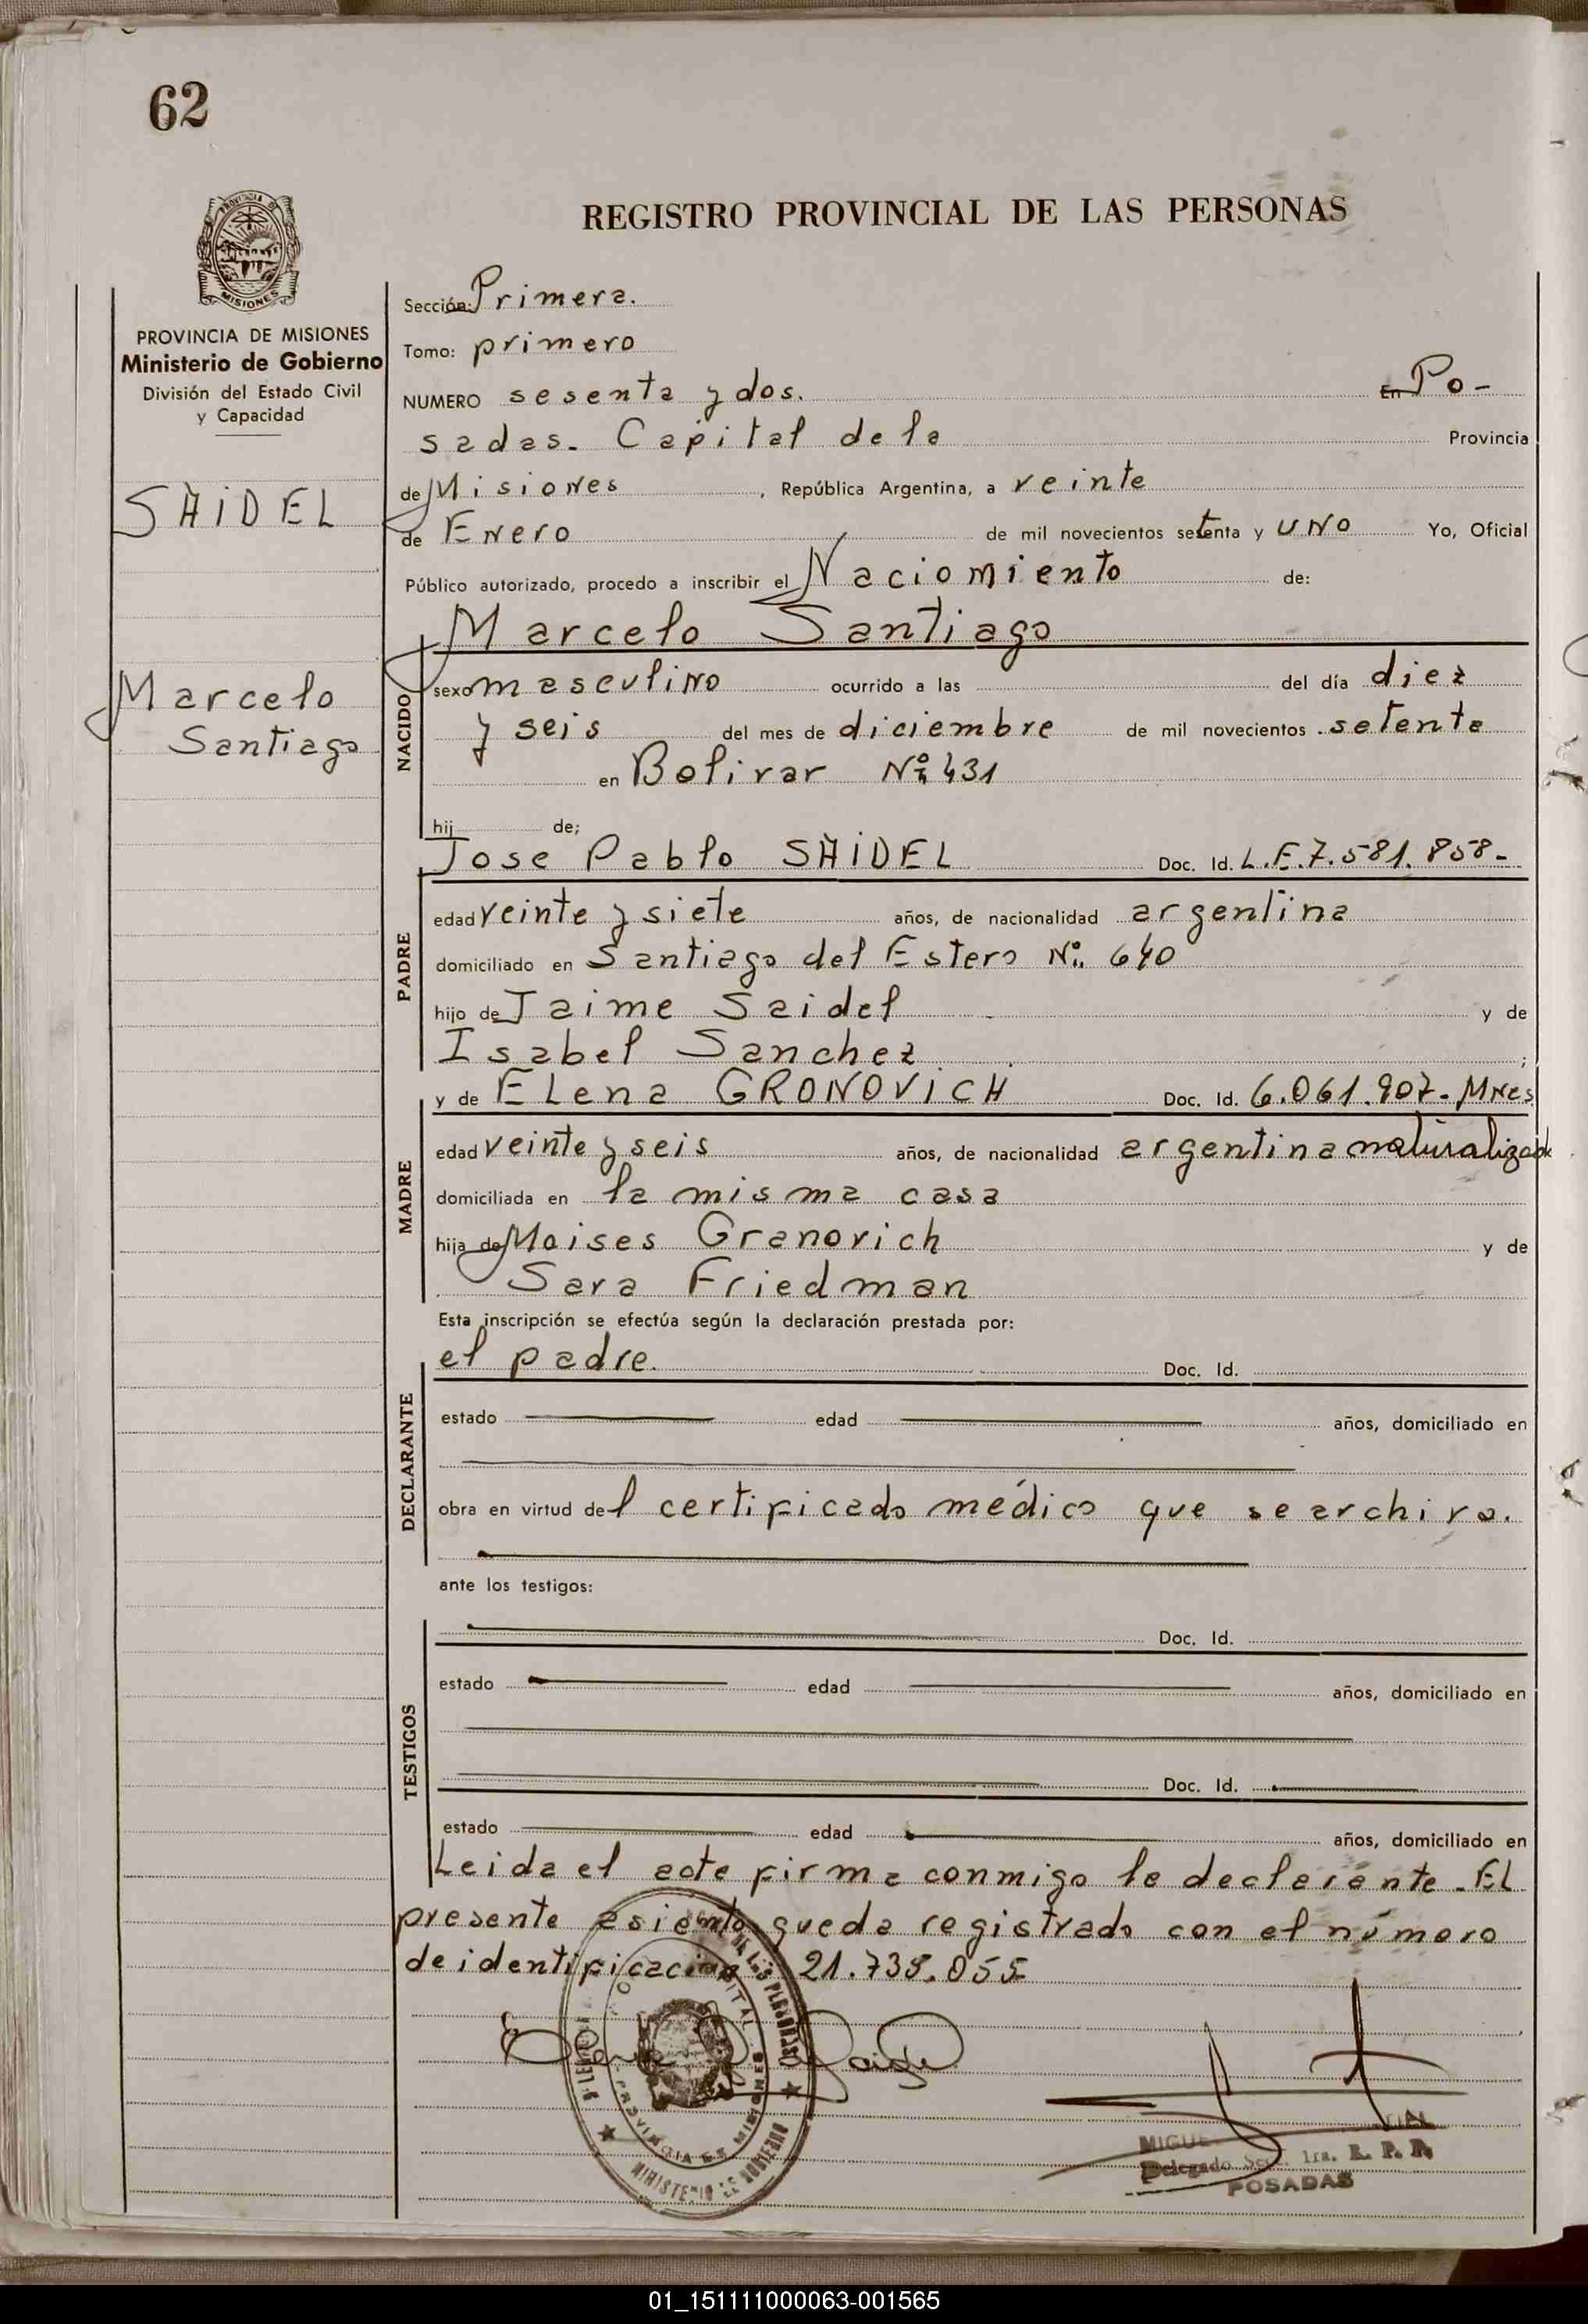 62
PROVINCIA DE
MISIONES
REGISTRO PROVINCIAL DE LAS PERSONAS
PROVINCIA DE MISIONES
Ministerio de Gobierno
División del Estado Civil
y Capacidad
SAIDEL
Marcelo
Santiago
Sección: Primera.
Tomo: primero
NUMERO sesenta y dos. En Po-
sadas. Capital de la Provincia
de Misiones, República Argentina, a veinte
de Enero de mil novecientos setenta y UNO Yo, Oficial
Público autorizado, procedo a inscribir el Naciomiento de:
Marcelo Santiago
NACIDO
sexo masculino ocurrido a las del día diez
y seis del mes de diciembre de mil novecientos setenta
en Bolivar Nº 431
hij de;
Jose Pablo SAIDEL Doc. Id. L.E.7.581.858-
PADRE
edad veinte y siete años, de nacionalidad argentina
domiciliado en Santiago del Estero Nº 640
hijo de Jaime Saidel y de
Isabel Sanchez ;
y de ELena GRONOVICH Doc. Id. 6.061.907- MNes
MADRE
edad veinte y seis años, de nacionalidad argentina naturalizada
domiciliada en la misma casa
hija de Moises Granovich y de
Sara Friedman
Esta inscripción se efectúa según la declaración prestada por:
el padre. Doc. Id.
DECLARANTE
estado edad años, domiciliado en
obra en virtud del certificado médico que se archiva.
ante los testigos:
Doc. Id.
TESTIGOS
estado edad años, domiciliado en
Doc. Id.
estado edad años, domiciliado en
Leida el acta firma conmigo la declarante. EL
presente asiento queda registrado con el número
de identificación 21.738.055
DE LAS PERSONAS
CAPITAL
PROVINCIA DE MISIONES
MINISTERIO DE GOBIERNO
Delegado Secc. 1ra. R. P. P.
POSADAS
01_151111000063-001565